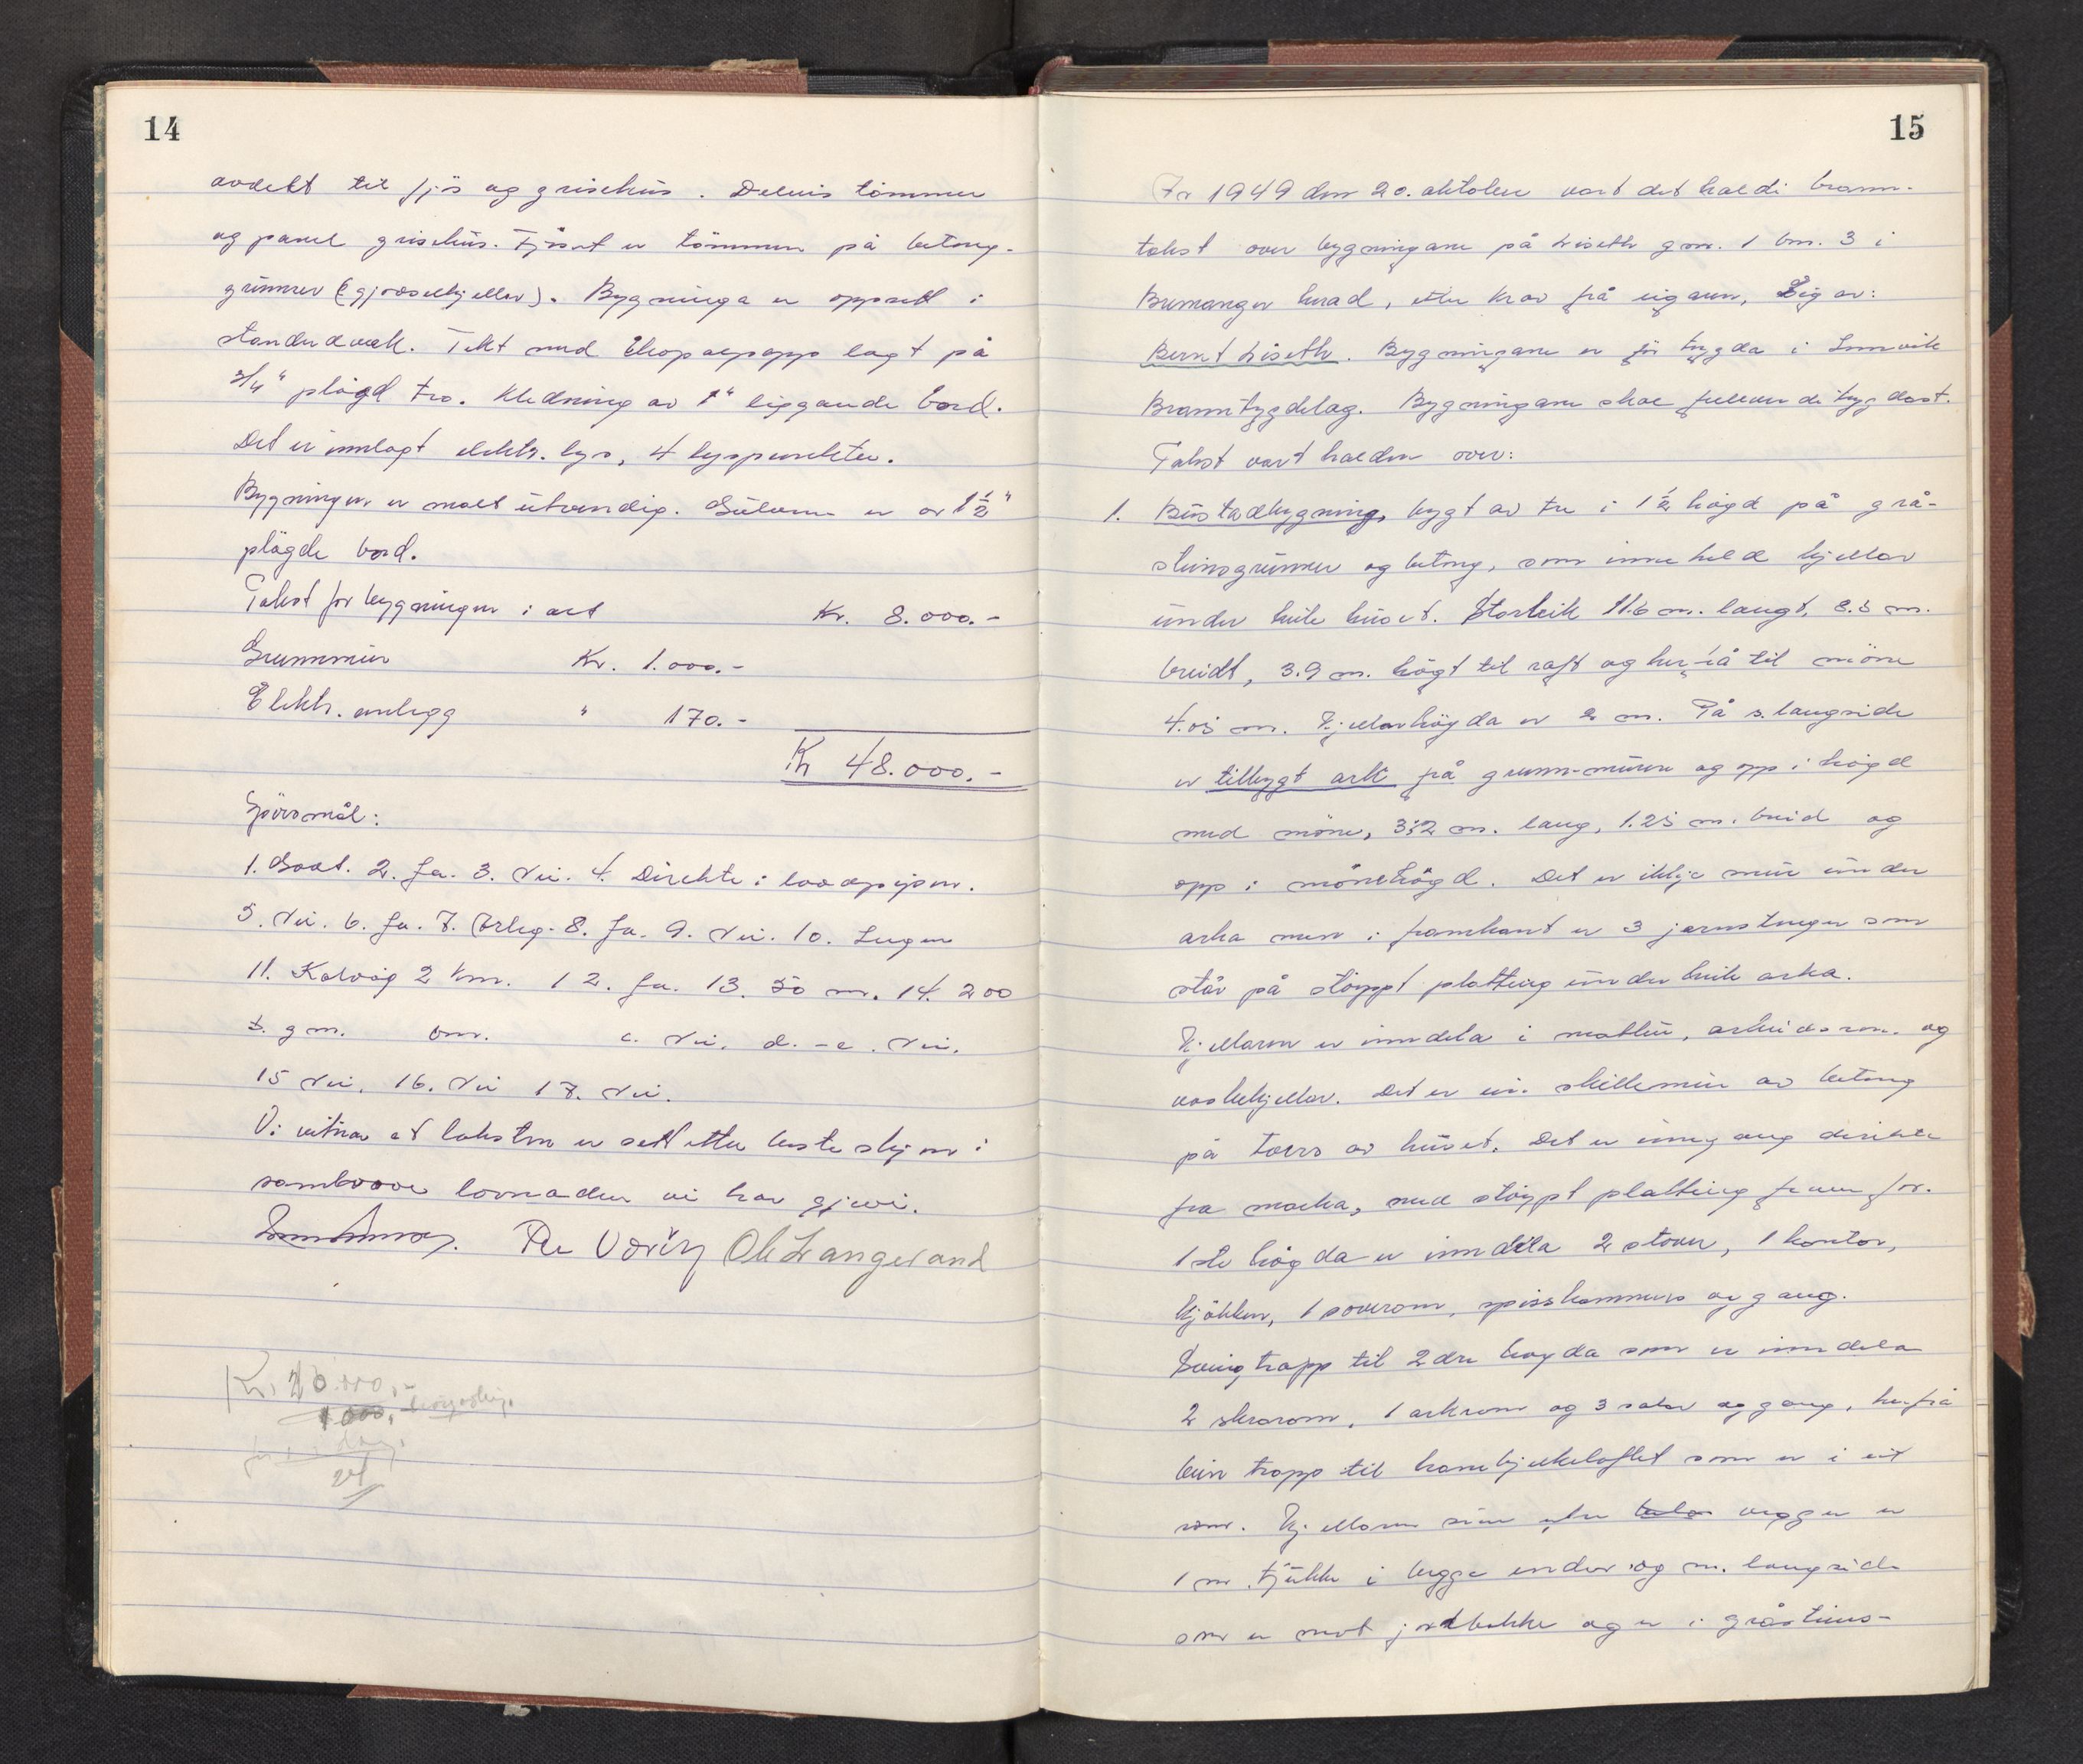 14
avdelt til fjös og grisehus. Delvis tömmer
og panel grisehus. Fjöset er tömmer på betong-
grunnur (gjödselkjellar). Bygninga er oppsett i
standerdverk. Tekt med papp lagt på
3/4" plögd tro. Kledning av 1" liggande bord.
Det er innlagt elektr. lys, 4 lyspunkter.
Bygningen er malt utvendig. Gulvene er av 1 1/2"
plögde bord.
Takst for bygningen i alt Kr. 8.000.-
Grunnmur Kr. 1.000.-
Elektr. anlegg " 170.-
Kr 48.000.-
Spörsmål:
1. Godt. 2. Ja. 3. Nei. 4. Direkte i
5. Nei. 6. Ja. 7. Årleg. 8. Ja. 9. Nei. 10. Ingen
11. Kalvåg 2 km. 12. Ja. 13. 50 m. 14. 200
b. gm. bm. c. Nei. d. - e. Nei.
15 Nei. 16. Nei 17. Nei.
Vi vitnar at taksten er sett etter beste skjön i
samsvar lovnaden vi har gjevi.
Ole Langesand
Kr. 20.000,-
1000,-
24
15
År 1949 den 20. oktober vart det haldi brann-
takst over bygningane på Liseth gnr. 1 bnr. 3 i
Bremanger herad, etter krav frå eigaren, Eigar:
Bernt Liseth. Bygningane er för trygda i
Branntrygdelag. Bygningane skal fullverditrygdast.
Takst vart halden over:
1. Bustadbygning, bygt av tre i 1 1/2 högd på grå-
steinsgrunnur og betong, som inneheld kjellar
under heile huset. Storleik 11.6 m. langt, 8.5 m.
breidt, 3.9 m. högt til raft og her-ifrå til möne
4.05 m. Kjellarhögda er 2 m. På s. langside
er tilbygt ark frå grunn-muren og opp i högd
med möne, 3.2 m. lang, 1.25 m. breid og
opp i mönehögd. Det er ikkje mur under
arka men i framkant er 3 jernstenger som
står på stöypt platting under heile arka.
Kjellaren er inndela i matbu, arbeidsrom og
vaskekjellar. Det er ein skillemur av betong
på tvers av huset. Det er inngang direkte
fra marka, med stöypt platting framfor.
1ste högda er inndela 2 stover, 1 kontor,
kjökken, 1 soverom, spisskammers og gang.
Svingtrapp til 2dre högda som er inndela
2 skrarom, 1 arkrom og 3 salar og gang, herfrå
bein trapp til hanebjelkeloftet som er i eit
rom. Kjellaren sine ytre vegger er
1 m. tjukke i begge ender og n. langside
som er mot jordbakke og er i gråsteins-